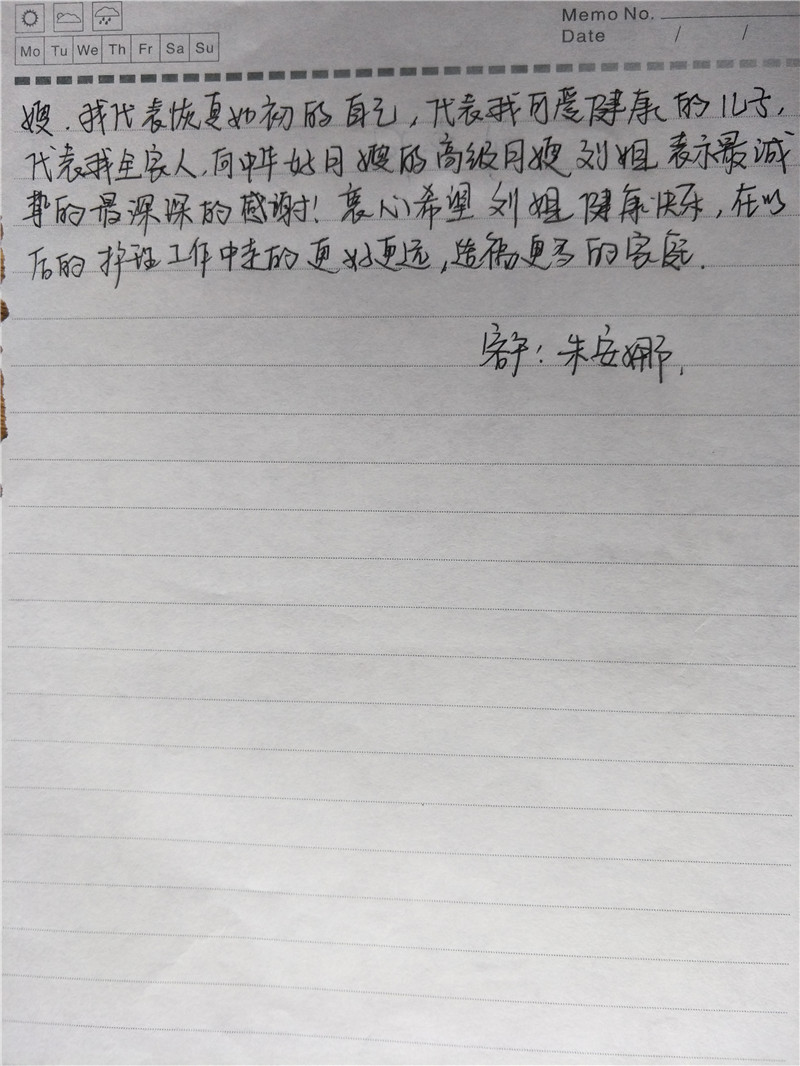 Memo No.
Date / /
Mo Tu We Th Fr Sa Su
嫂。我代表恢复如初的自己，代表我可爱健康的儿子，
代表我全家人，向中华好月嫂的高级月嫂刘姐表示最诚
挚的最深深的感谢！衷心希望刘姐健康快乐，在以
后的护理工作中走的更好更远，造福更多的家庭．
客户：朱安娜．